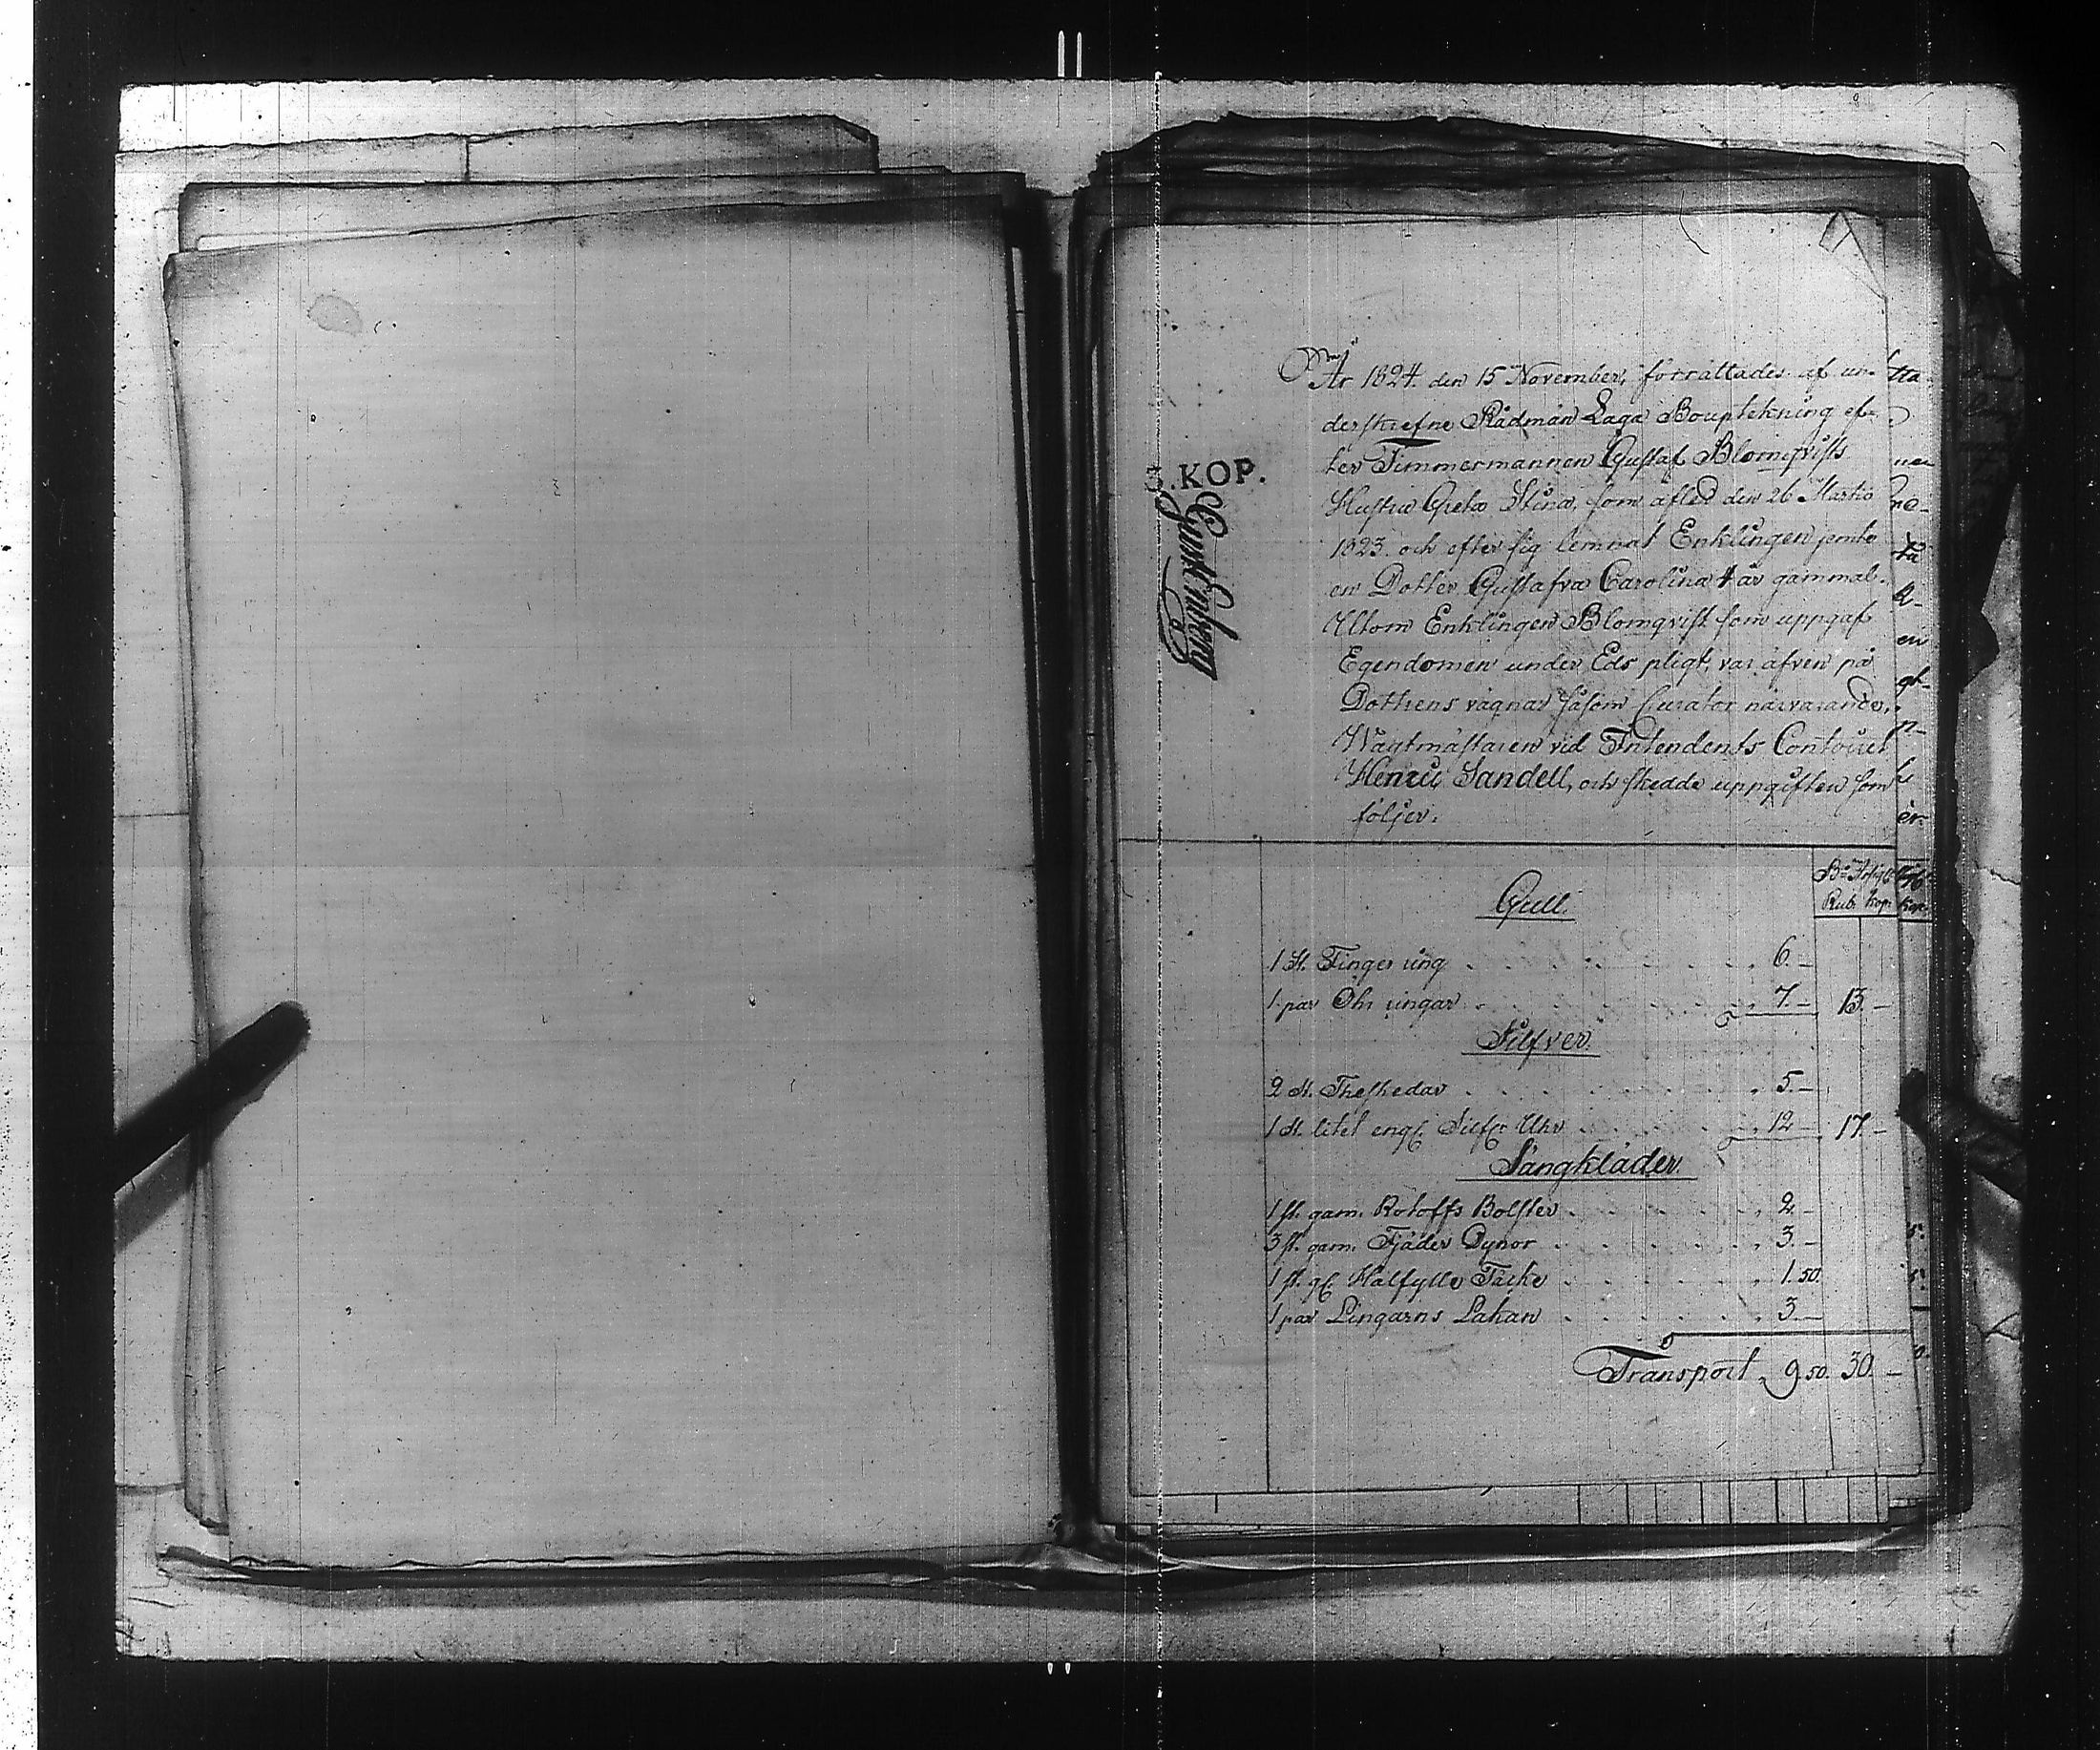 År 1824. den 15 November, förrättades af un-
derskrefne Rådman Laga Bouptekning ef-
ter Timmermannen Gustaf Blomqvists
Hustru Greta Stina, som afled den 26 Martii
1823. och efter sig lemnat Enklingen jemte
en Dotter Gustafva Carolina 4 år gammal.
Utom Enklingen Blomqvist som uppgaf
Egendomen under Eds pligt, var äfven på
Dottrens vägnar såsom Curator närvarande,
Wagtmästaren vid Intendents Contoiret
Henric Sandell, och skedde uppgiften som
följer.
5.KOP.
Rub. kop.
Gull.
1 st. Finger ring 6. –
1 par Öhr ringar 7. – 13. –
Silfver.
2 st. Theskedar 5. –
1 st. litet engl. Silfr Uhr 12 – 17. –
Sängkläder.
1 st. gam. Rotoffs Bolster 2. –
3 st. gam. Fjäder Dynor 3. –
1 st. gl. Halfylle Täcke 1. 50.
1 par Lingarns Lakan 3. –
Transport 9. 50. 30. –